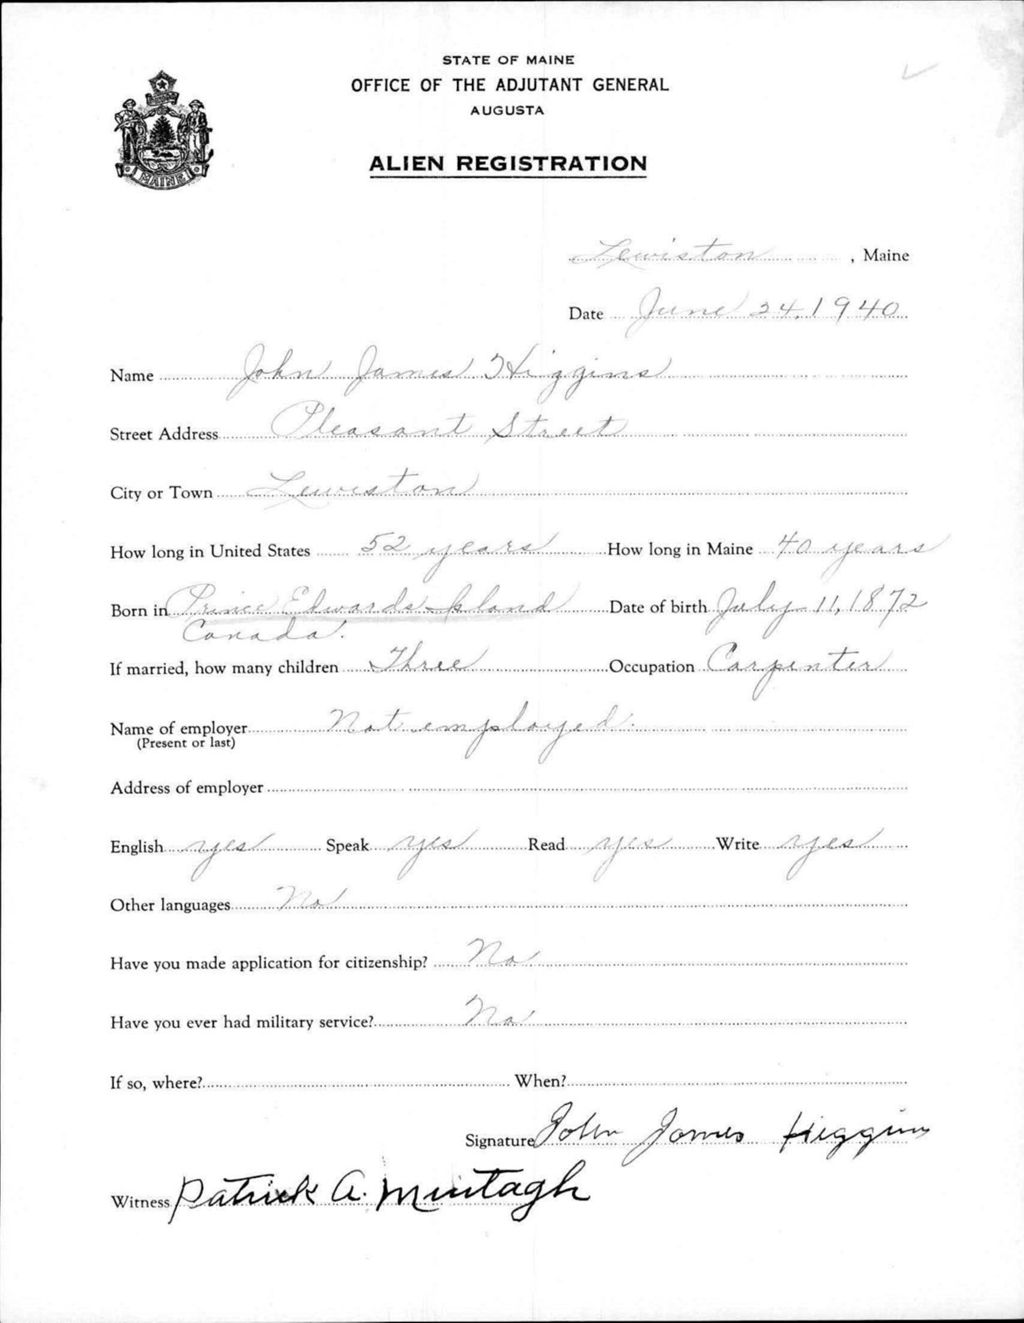 STATE OF MAINE
OFFICE OF THE ADJUTANT GENERAL
AUGUSTA
ALIEN REGISTRATION
MAINE
Lewiston, Maine
Date June 24, 1940
Name John James Higgins
Street Address Pleasant Street
City or Town Lewiston
How long in United States 52 years How long in Maine 40 years
Born in Prince Edwards Island Date of birth July 11, 1872
Canada.
If married, how many children Three Occupation Carpenter
Name of employer Not employed.
(Present or last)
Address of employer
English yes Speak yes Read yes Write yes
Other languages No
Have you made application for citizenship? No
Have you ever had military service? No
If so, where? When?
Signature John James Higgins
Witness Patrick A.